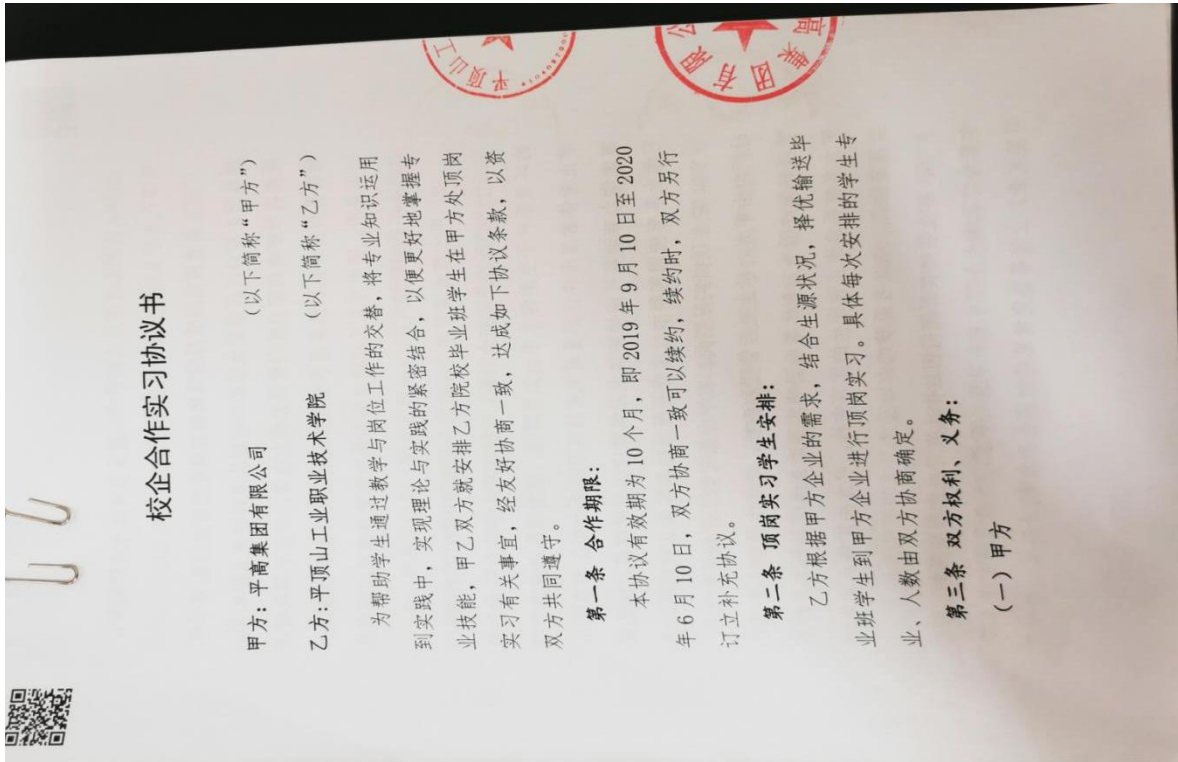 校企合作实习协议书
甲方：平高集团有限公司 （以下简称“甲方”）
乙方：平顶山工业职业技术学院 （以下简称“乙方”）
为帮助学生通过教学与岗位工作的交替，将专业知识运用
到实践中，实现理论与实践的紧密结合，以便更好地掌握专
业技能，甲乙双方就安排乙方院校毕业班学生在甲方处顶岗
实习有关事宜，经友好协商一致，达成如下协议条款，以资
双方共同遵守。
第一条 合作期限：
本协议有效期为 10 个月，即 2019 年 9 月 10 日至 2020
年 6 月 10 日，双方协商一致可以续约，续约时，双方另行
订立补充协议。
第二条 顶岗实习学生安排：
乙方根据甲方企业的需求，结合生源状况，择优输送毕
业班学生到甲方企业进行顶岗实习。具体每次安排的学生专
业、人数由双方协商确定。
第三条 双方权利、义务：
（一）甲方
平顶山工
高集团有限公